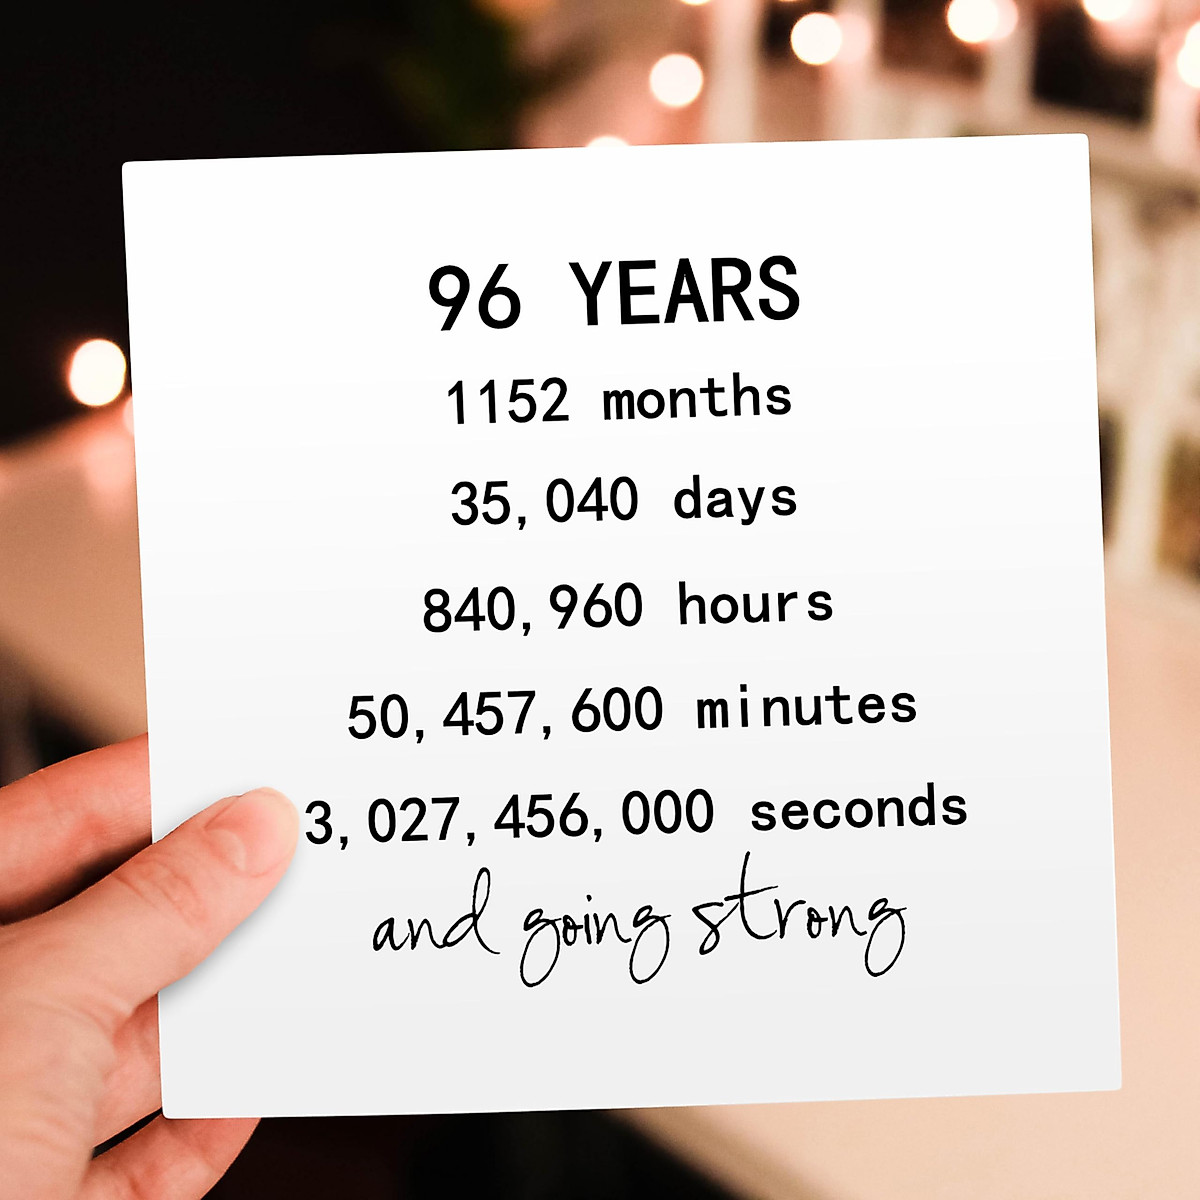 96 YEARS
1152 months
35,040 days
840,960 hours
50,457,600 minutes
3,027,456,000 seconds
and going strong